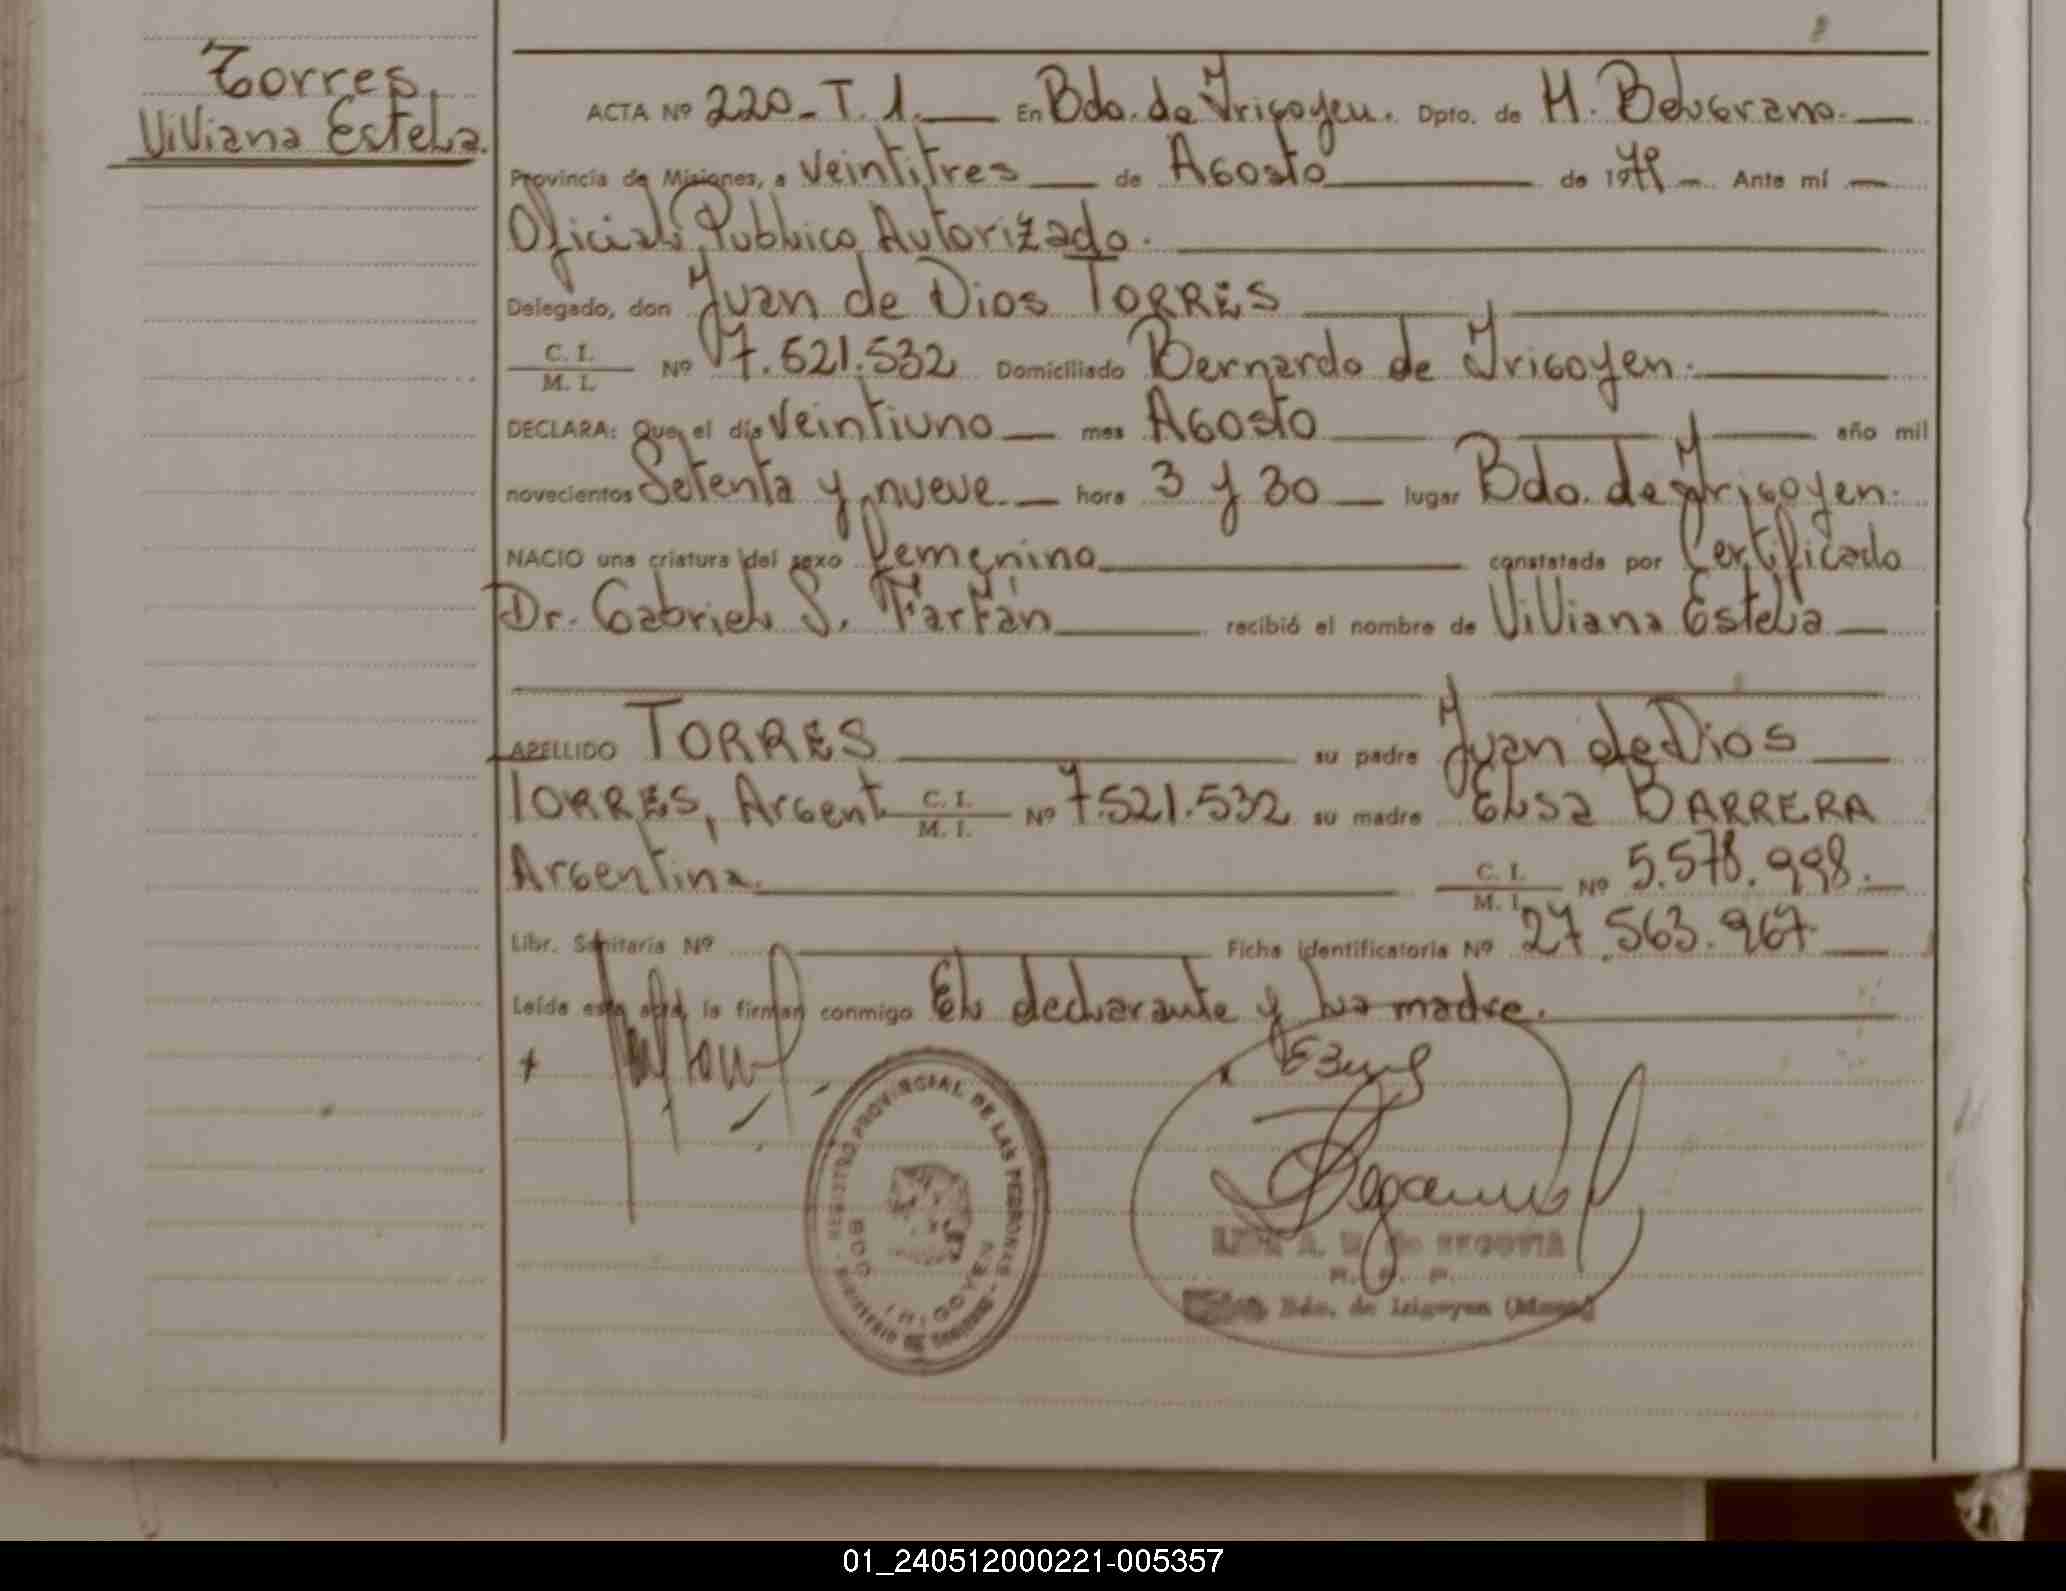 Torres,
Viviana Estela.
ACTA Nº 220 - T. 1. En Bdo. de Irigoyen. Dpto. de M. Belgrano.
Provincia de Misiones, a veintitres de Agosto de 1979 Ante mí
Oficial Publico Autorizado.
Delegado, don Juan de Dios TORRES
C. I. / M. I. Nº 7.521.532 Domiciliado Bernardo de Irigoyen.
DECLARA: Que el día veintiuno mes Agosto año mil
novecientos Setenta y nueve hora 3 y 30 lugar Bdo. de Irigoyen.
NACIO una criatura del sexo femenino constatada por Certificado
Dr. Gabriel S. Farfán recibió el nombre de Viviana Estela
APELLIDO TORRES su padre Juan de Dios
TORRES, Argent C. I. / M. I. Nº 7.521.532 su madre Elsa BARRERA
Argentina. C. I. / M. I. Nº 5.578.998.
Libr. Sanitaria Nº Ficha identificatoria Nº 27.563.967
Leída esta acta, la firman conmigo El declarante y la madre.
REGISTRO PROVINCIAL DE LAS PERSONAS
MINISTERIO DE GOBIERNO
BDO IRIGOYEN
A. de SEGOVIA
Bdo. de Irigoyen (Mnes)
01_240512000221-005357